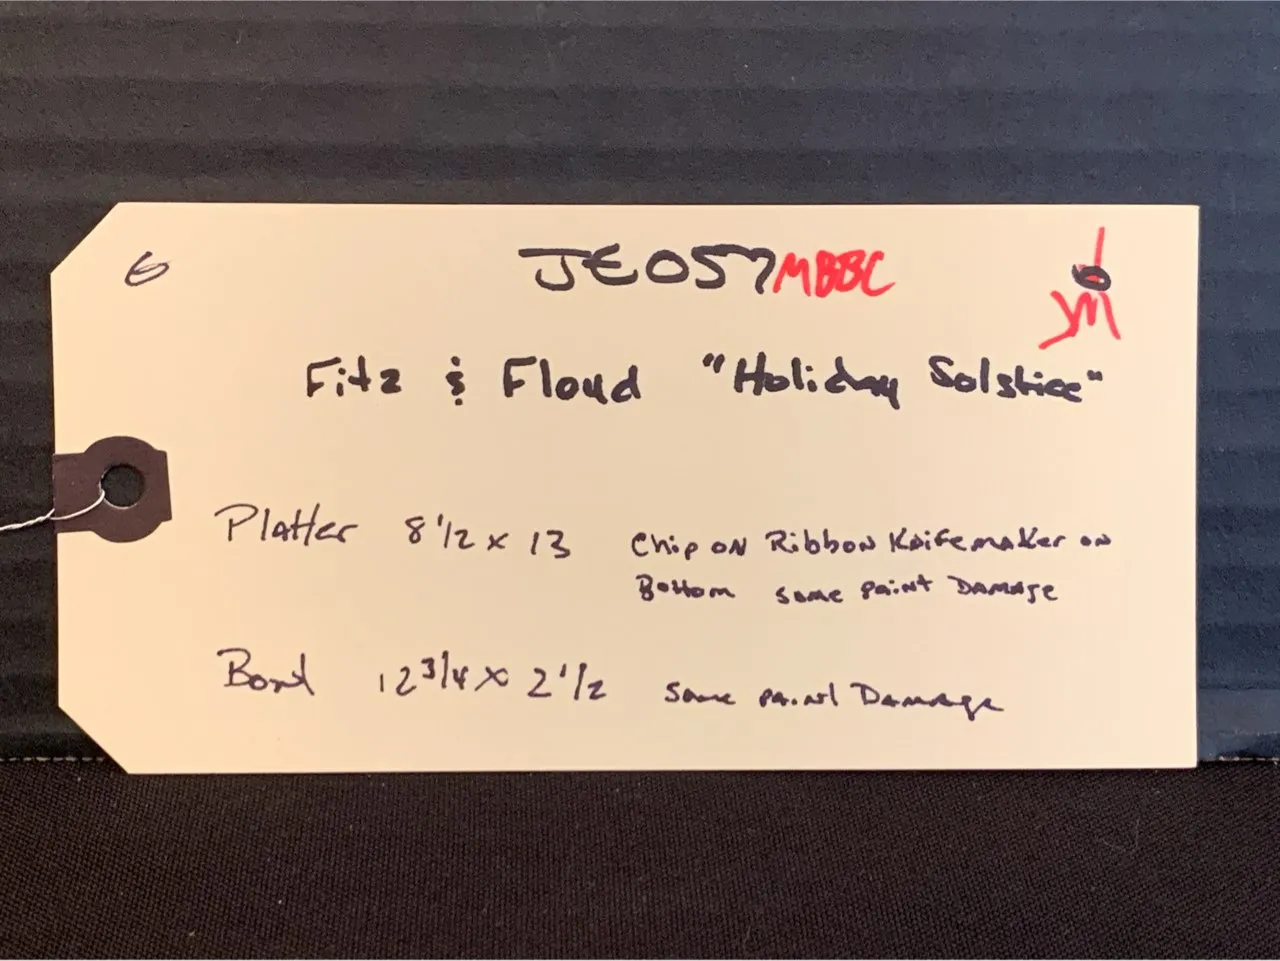 6 JE057MBBC 6
JM
Fitz & Floyd "Holiday Solstice"
Platter 8 1/2 x 13 Chip on Ribbon Knifemaker on
Bottom some paint Damage
Bowl 12 3/4 x 2 1/2 some paint Damage